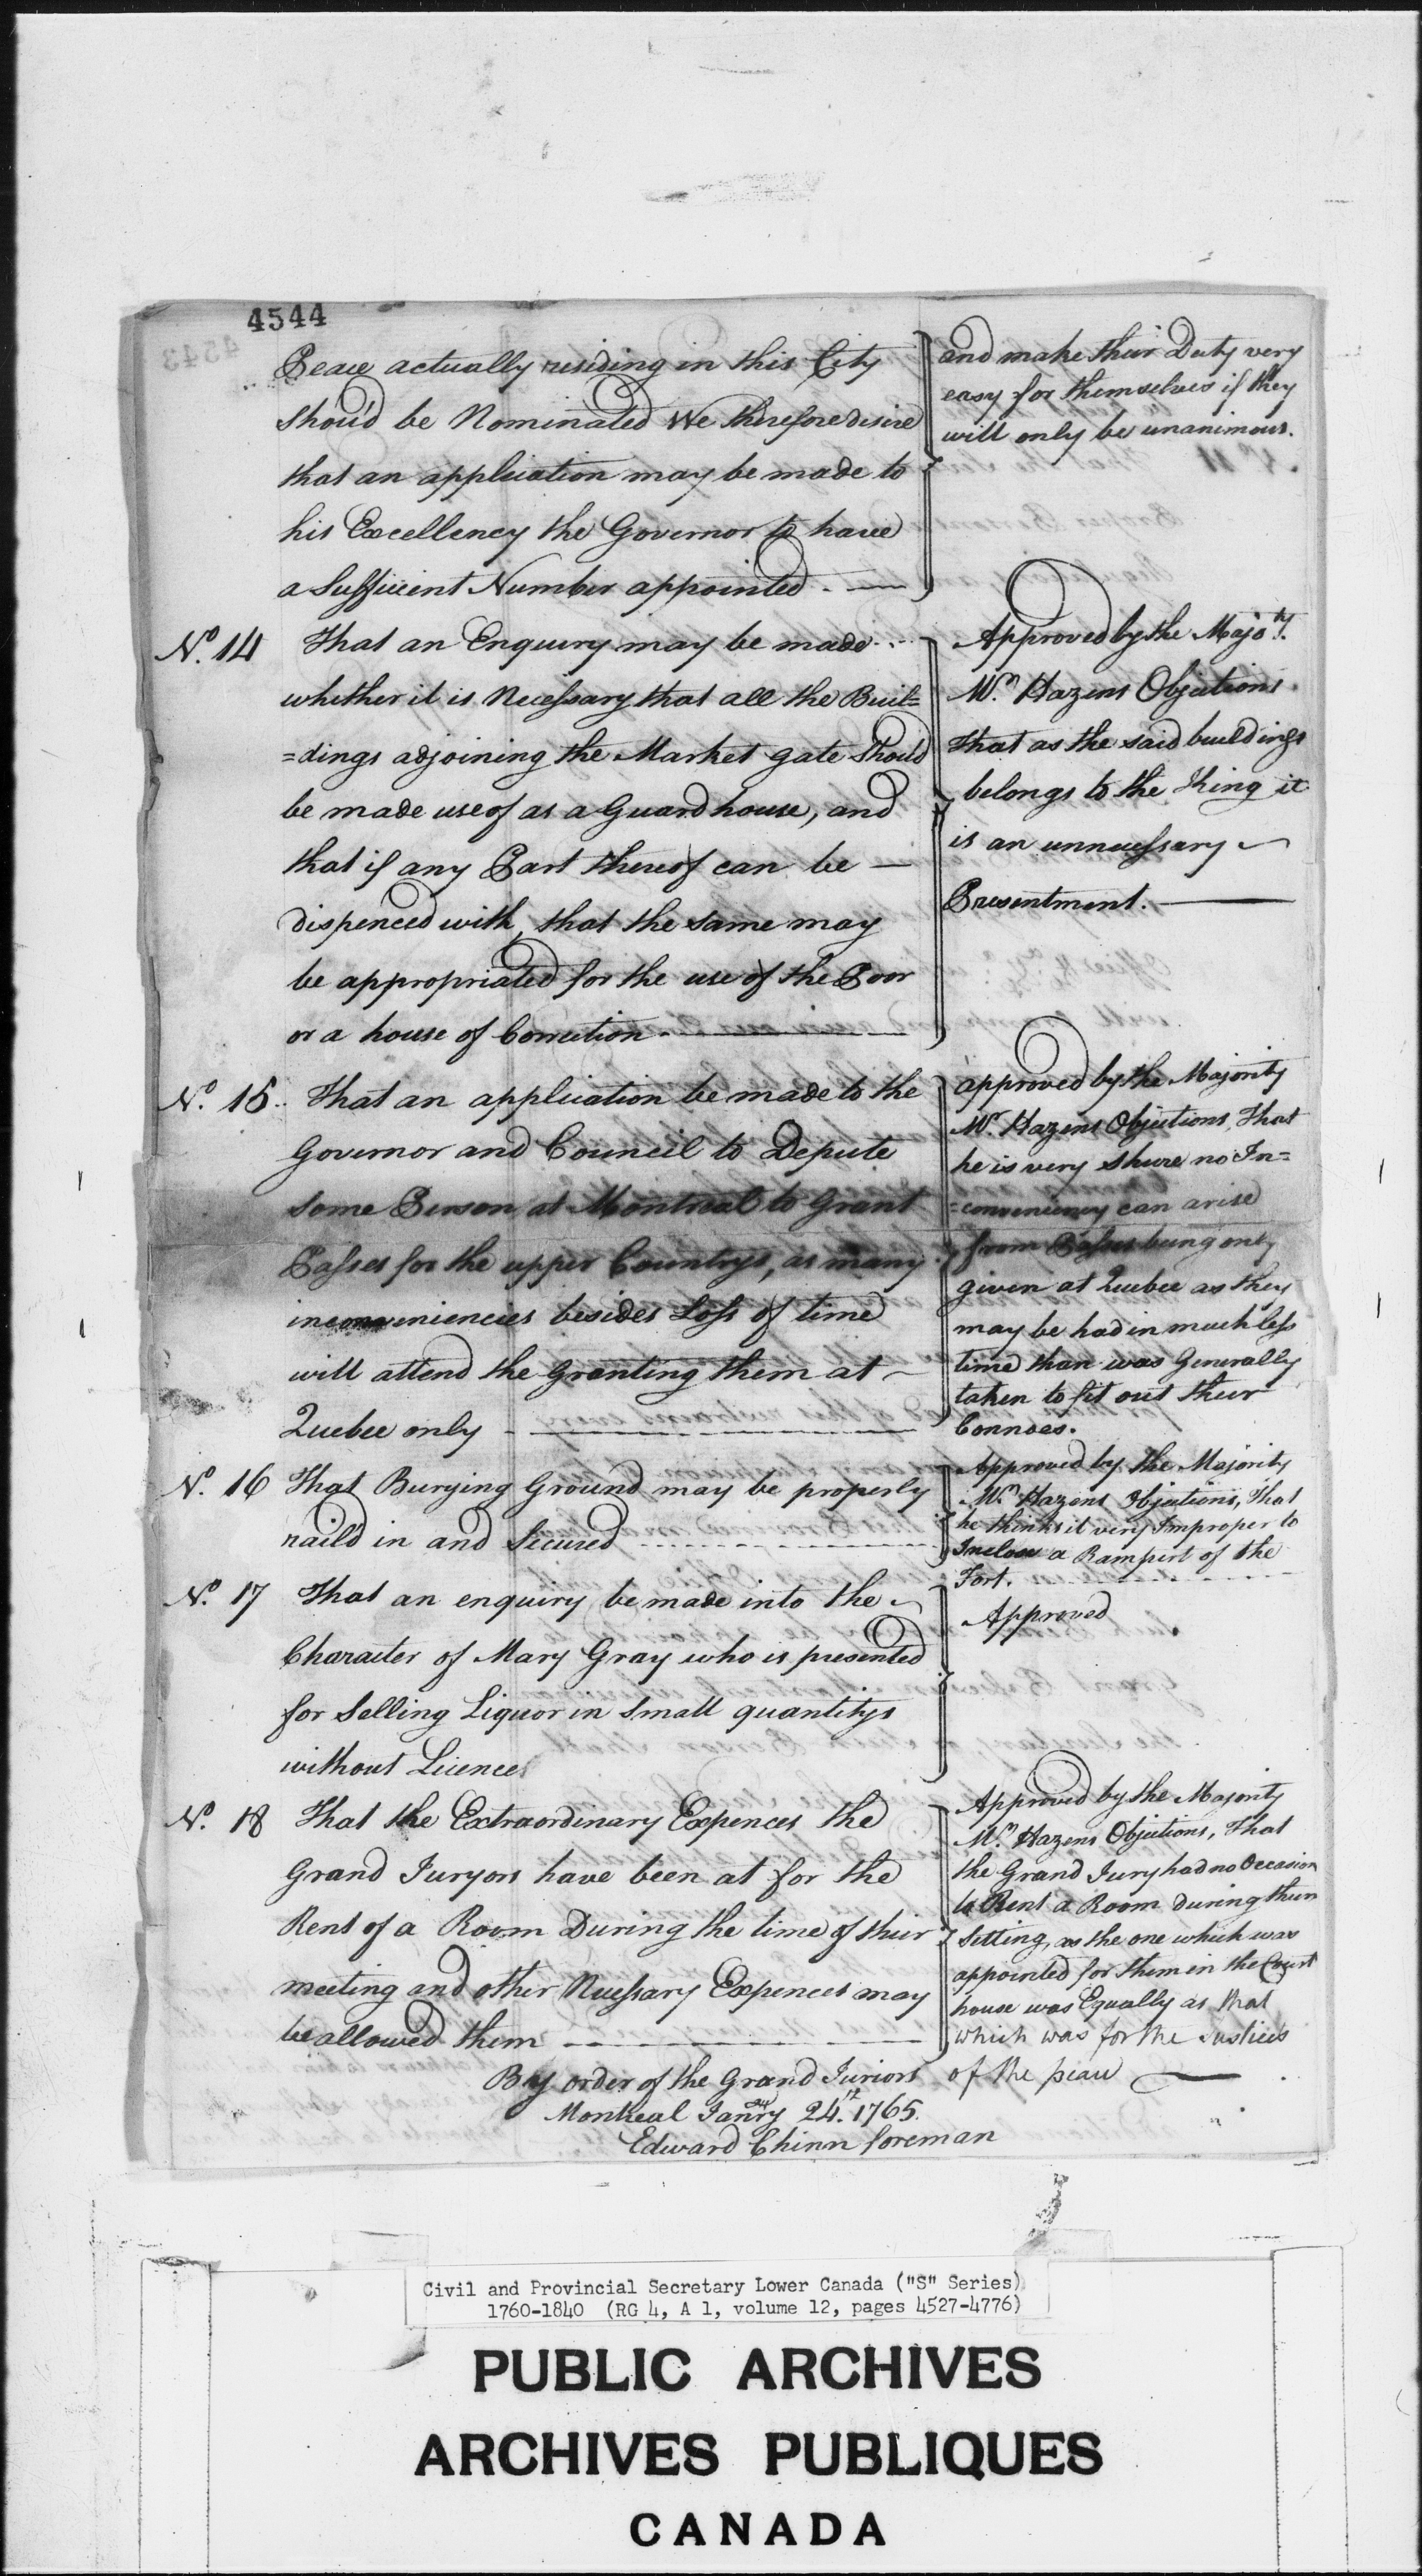 4544
Peace actually residing in this City
Shou'd be Nominated We therefore desire
that an application may be made to
his Excellency the Governor to have
a Sufficient Number appointed. —
and make their Duty very
easy for themselves if they
will only be unanimous.
No. 14 That an Enquiry may be made
whether it is Necessary that all the Buil=
=dings adjoining the Market gate Should
be made use of as a Guard house, and
that if any Part thereof can be —
dispenced with, that the same may
be appropriated for the use of the Poor
or a house of Correction
Approved by the Majoty.
Mr. Hazens Objections
that as the said buildings
belongs to the King it
is an unnecessary
Presentment.
No. 15. That an application be made to the
Governor and Council to Depute
some Person at Montreal to Grant
Passes for the upper Countrys, as many
inconveniencies besides Loss of time
will attend the Granting them at
Quebec only
approved by the Majority
Mr. Hazens Objections, That
he is very Shure no In=
=conveniency can arise
from Passes being only
given at Quebec as they
may be had in much less
time than was Generally
taken to fit out their
Connoes.
No. 16 That Burying Ground may be properly
raild in and Secured
Approved by the Majority
Mr. Hazens Objections, That
he thinks it very Improper to
Inclose a Rampert of the
Fort.
No. 17 That an enquiry be made into the
Character of Mary Gray who is presented
for Selling Liquor in Small quantitys
without Licence
Approved
No. 18 That the Extraordinary Expences the
Grand Juryors have been at for the
Rent of a Room During the time of their
meeting and other Necessary Expences may
be allowed them
Approved by the Majority
Mr. Hazens Objections, That
the Grand Jury had no Occasion
to Rent a Room During their
Setting, as the one which was
appointed for them in the Court
house was Equally as that
which was for the Justices
of the peace
By order of the Grand Juriors
Montreal Janry 24th. 1765.
Edward Chinn foreman
Civil and Provincial Secretary Lower Canada ("S" Series)
1760-1840 (RG 4, A 1, volume 12, pages 4527-4776)
PUBLIC ARCHIVES
ARCHIVES PUBLIQUES
CANADA